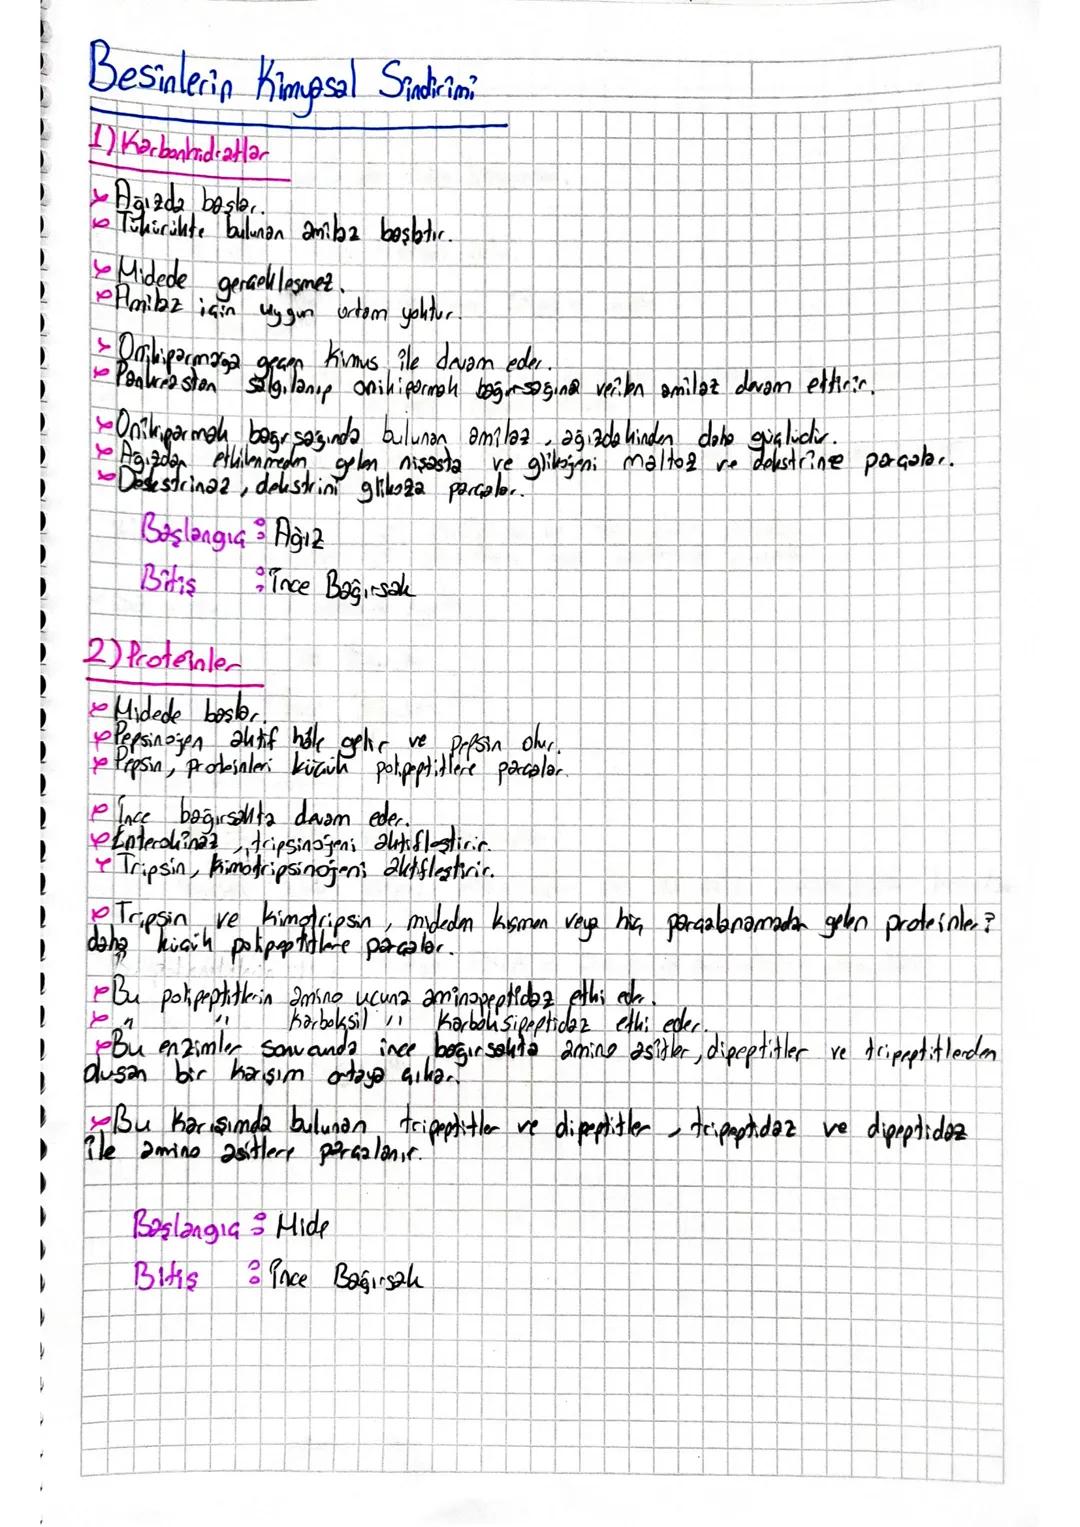 Besinlerin Kimyasal Sindirimi
1) Karbonhidratlar
Ağızda başlar.
Tükürükte bulunan amilaz başlatır.
Midede gerçekleşmez.
Amilaz için uygun ortam yoktur.
Onikiparmağa geçen kimus ile devam eder.
Pankreastan salgılanıp onikiparmak bağırsağına verilen amilaz devam ettirir.
Onikiparmak bağırsağında bulunan amilaz, ağızdakinden daha güçlüdür.
Ağızdan etkilenmeden gelen nişasta ve glikojeni maltoz ve dekstrine parçalar.
Dekstrinaz, dekstrini glikoza parçalar.
Başlangıç : Ağız
Bitiş : İnce Bağırsak
2) Proteinler
Midede başlar.
Pepsinojen aktif hâle gelir ve pepsin olur.
Pepsin, proteinleri küçük polipeptitlere parçalar.
İnce bağırsakta devam eder.
Enterokinaz, tripsinojeni aktifleştirir.
Tripsin, kimotripsinojeni aktifleştirir.
Tripsin ve kimotripsin, mideden kısmen veya hiç parçalanamadan gelen proteinleri
daha küçük polipeptitlere parçalar.
Bu polipeptitlerin amino ucuna aminopeptidaz etki eder.
" " karboksil " karboksipeptidaz etki eder.
Bu enzimler sonucunda ince bağırsakta amino asitler, dipeptitler ve tripeptitlerden
oluşan bir karışım ortaya çıkar.
Bu karışımda bulunan tripeptitler ve dipeptitler, tripeptidaz ve dipeptidaz
ile amino asitlere parçalanır.
Başlangıç : Mide
Bitiş : İnce Bağırsak